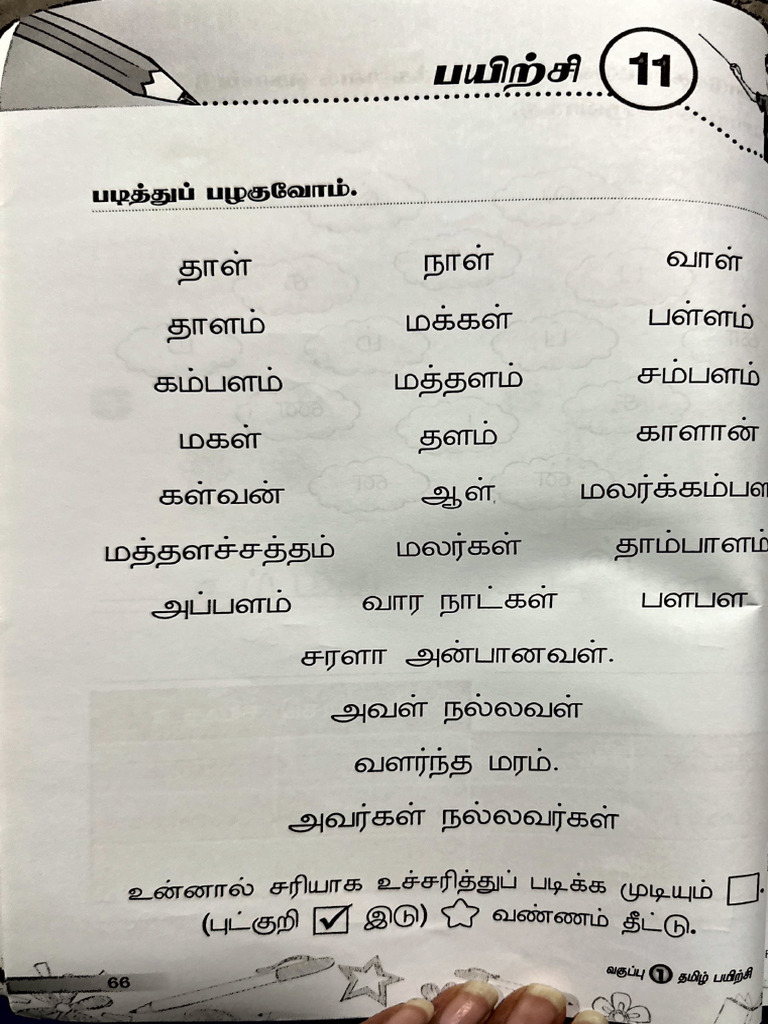 பயிற்சி 11
படித்துப் பழகுவோம்.
தாள் நாள் வாள்
தாளம் மக்கள் பள்ளம்
கம்பளம் மத்தளம் சம்பளம்
மகள் தளம் காளான்
கள்வன் ஆள்
மத்தளச்சத்தம் மலர்கள் தாம்பாளம்
அப்பளம் வார நாட்கள் பளபள
சரளா அன்பானவள்.
அவள் நல்லவள்
வளர்ந்த மரம்.
அவர்கள் நல்லவர்கள்
உன்னால் சரியாக உச்சரித்துப் படிக்க முடியும் .
(புட்குறி ✓ இடு) வண்ணம் தீட்டு.
66 வகுப்பு 1 தமிழ் பயிற்சி